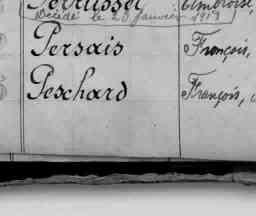 Ambroise,
Décédé le 20 janvier 1913
Persais François,
Peschard François,